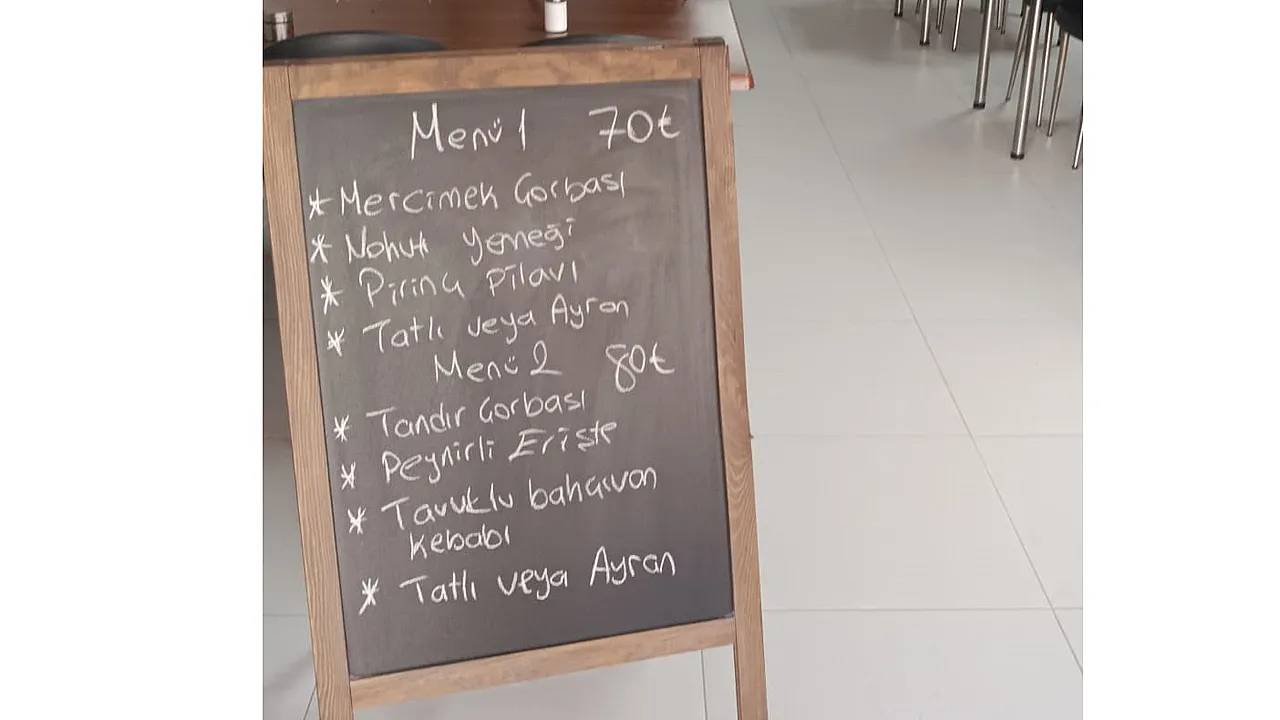 Menü 1 70₺
* Mercimek Çorbası
* Nohut Yemeği
* Pirinç Pilavı
* Tatlı veya Ayran
Menü 2 80₺
* Tandır Çorbası
* Peynirli Erişte
* Tavuklu bahçıvan
kebabı
* Tatlı veya Ayran